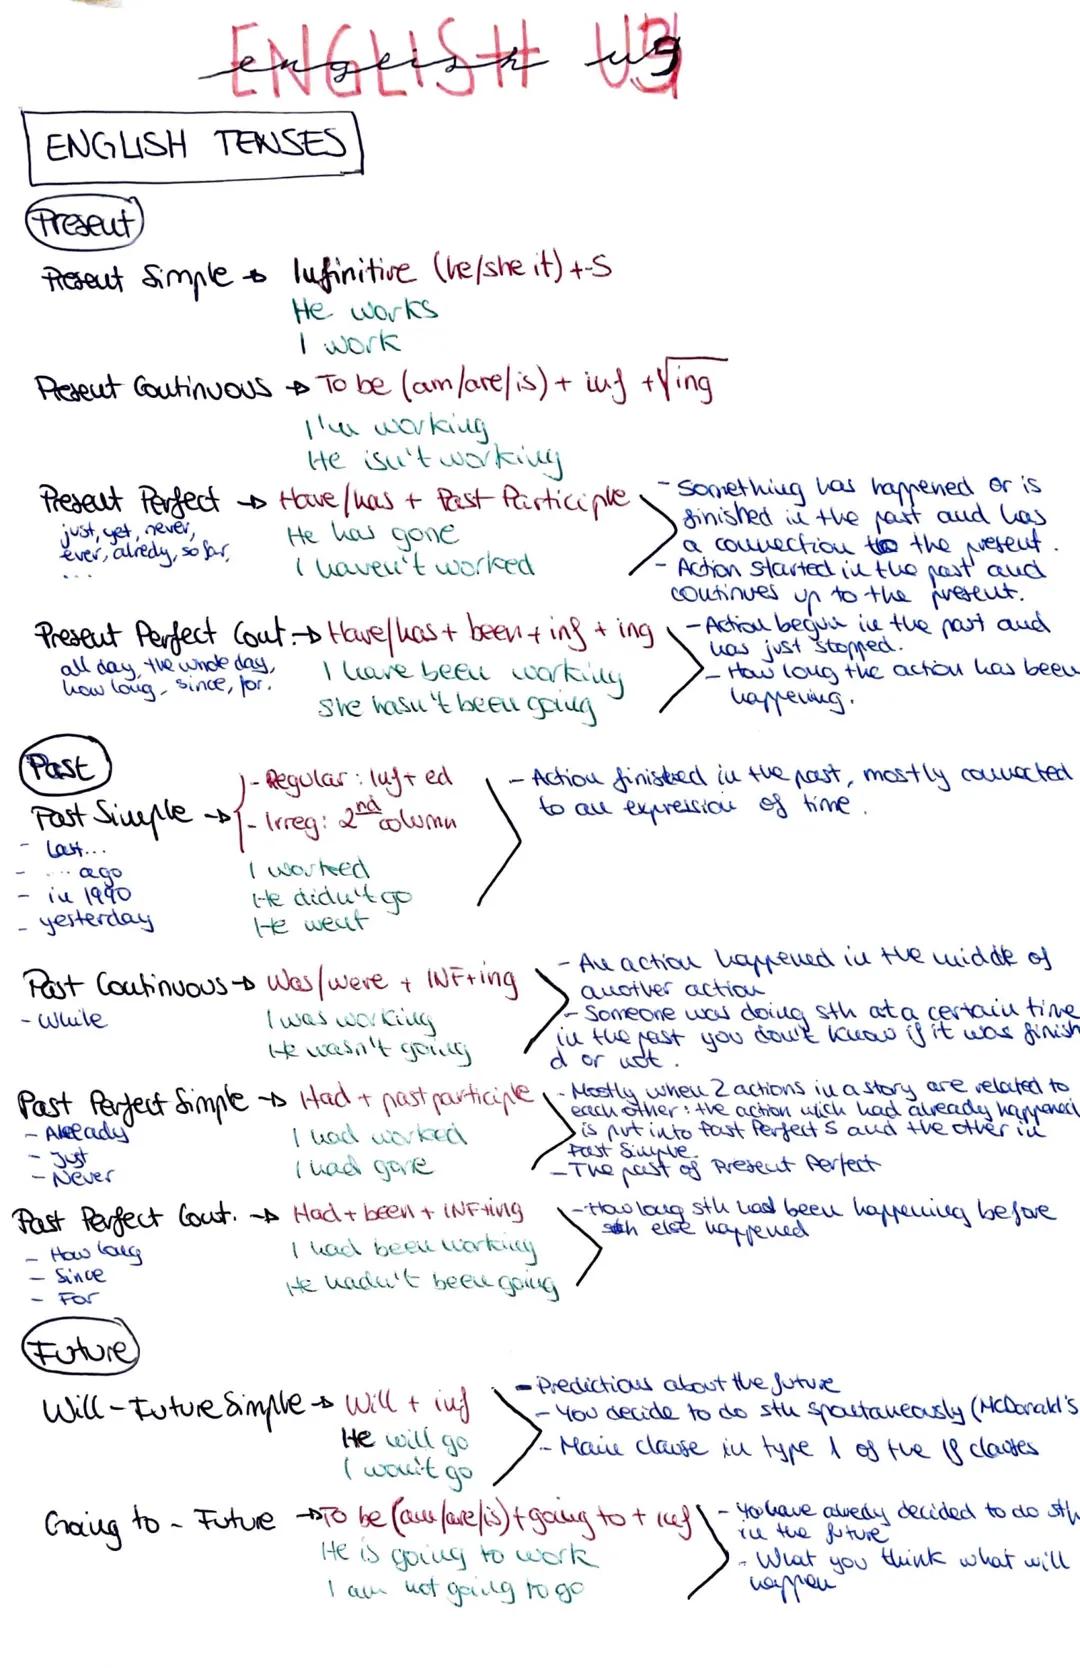 ENGLISH U3
english u3
ENGLISH TENSES
Present
Present Simple → Infinitive (he/she it) +-S
He works
I work
Present Continuous → To be (am/are/is) + inf + √ing
I'm working
He isn't working
Present Perfect → Have/has + Past Participle
just, yet, never,
ever, alredy, so far,
...
He has gone
I haven't worked
- Something has happened or is
finished in the past and has
a connection to the present.
- Action started in the past and
continues up to the present.
Present Perfect Cont. → Have/has + been + inf + ing
all day, the whole day,
how long, since, for.
I have been working
She hasn't been going
- Action begun in the past and
has just stopped.
- How long the action has been
happening.
Past
Past Simple →
- Regular: inf + ed
- Irreg: 2nd column
- Last...
- ... ago
- in 1990
- yesterday
I worked
He didn't go
He went
- Action finished in the past, mostly connected
to an expression of time.
Past Continuous → Was/were + INF+ing
- While
I was working
He wasn't going
- An action happened in the middle of
another action
- Someone was doing sth at a certain time
in the past you don't know if it was finish
d or not.
Past Perfect Simple → Had + past participle
- Already
- Just
- Never
I had worked
I had gone
- Mostly when 2 actions in a story are related to
each other: the action wich had already happened
is put into Past Perfect S and the other in
Past Simple.
- The past of Present Perfect
Past Perfect Cont. → Had + been + INF+ing
- How long
- Since
- For
I had been working
He hadn't been going
- How long sth had been happening before
sth else happened
Future
Will - Future Simple → Will + inf
He will go
I won't go
- Predictions about the future
- You decide to do sth spontaneously (McDonald's
- Main clause in type 1 of the if clauses
Going to - Future → To be (am/are/is) + going to + inf
He is going to work
I am not going to go
- You have alredy decided to do sth
in the future
- What you think what will
happen